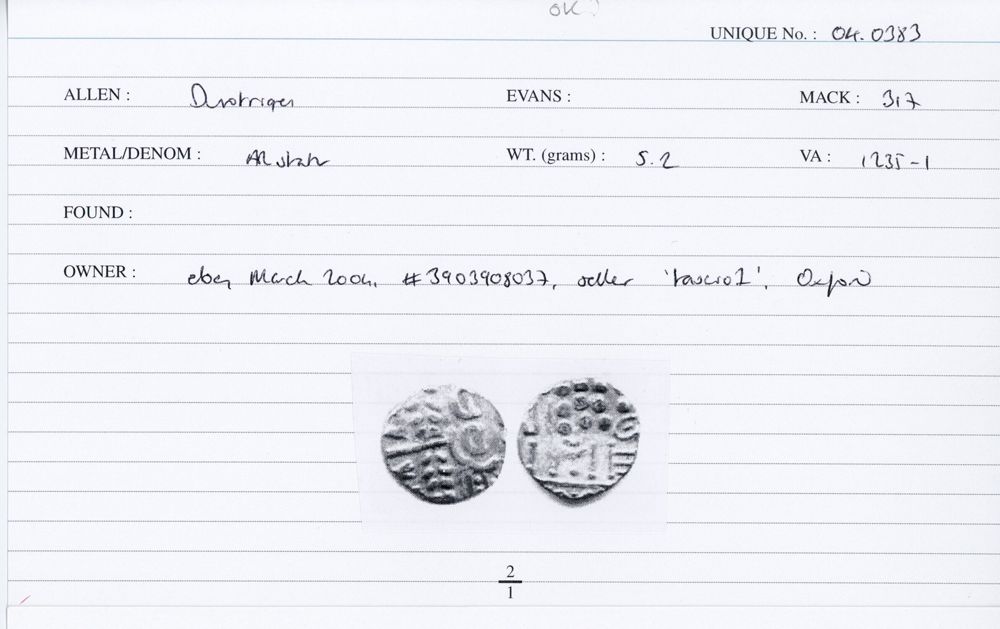 OK?
UNIQUE No. : 04.0383
ALLEN : Durotriges EVANS : MACK : 317
METAL/DENOM : AR stater WT. (grams) : 5.2 VA : 1235-1
FOUND :
OWNER : ebay March 2004, #3903908037, seller Oxford
2
1